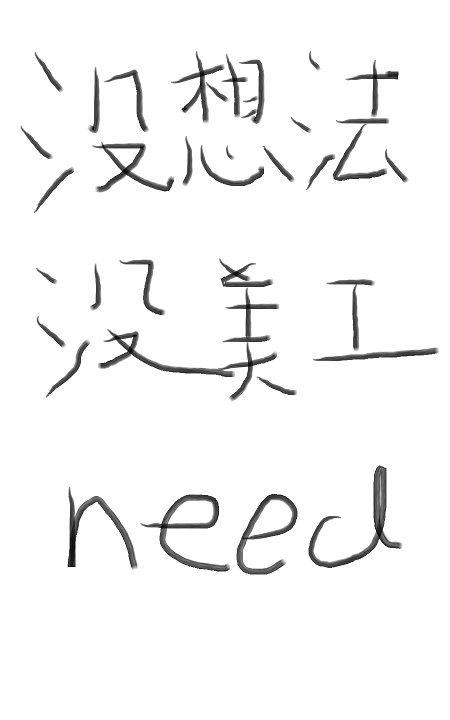 没想法
没美工
need